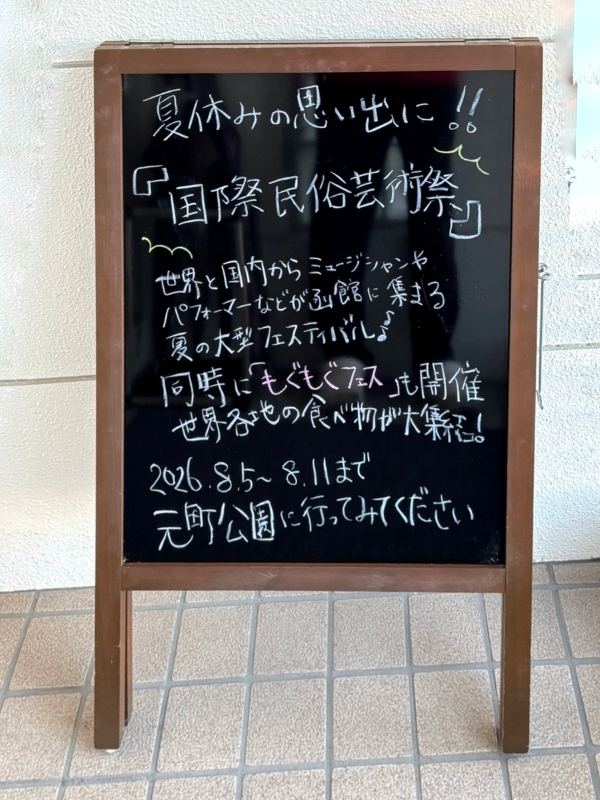 夏休みの思い出に!!
『国際民俗芸術祭』
世界と国内からミュージシャンや
パフォーマーなどが函館に集まる
夏の大型フェスティバル♪
同時に「もぐもぐフェス」も開催
世界各地の食べ物が大集結!
2026.8.5~8.11まで
元町公園に行ってみてください